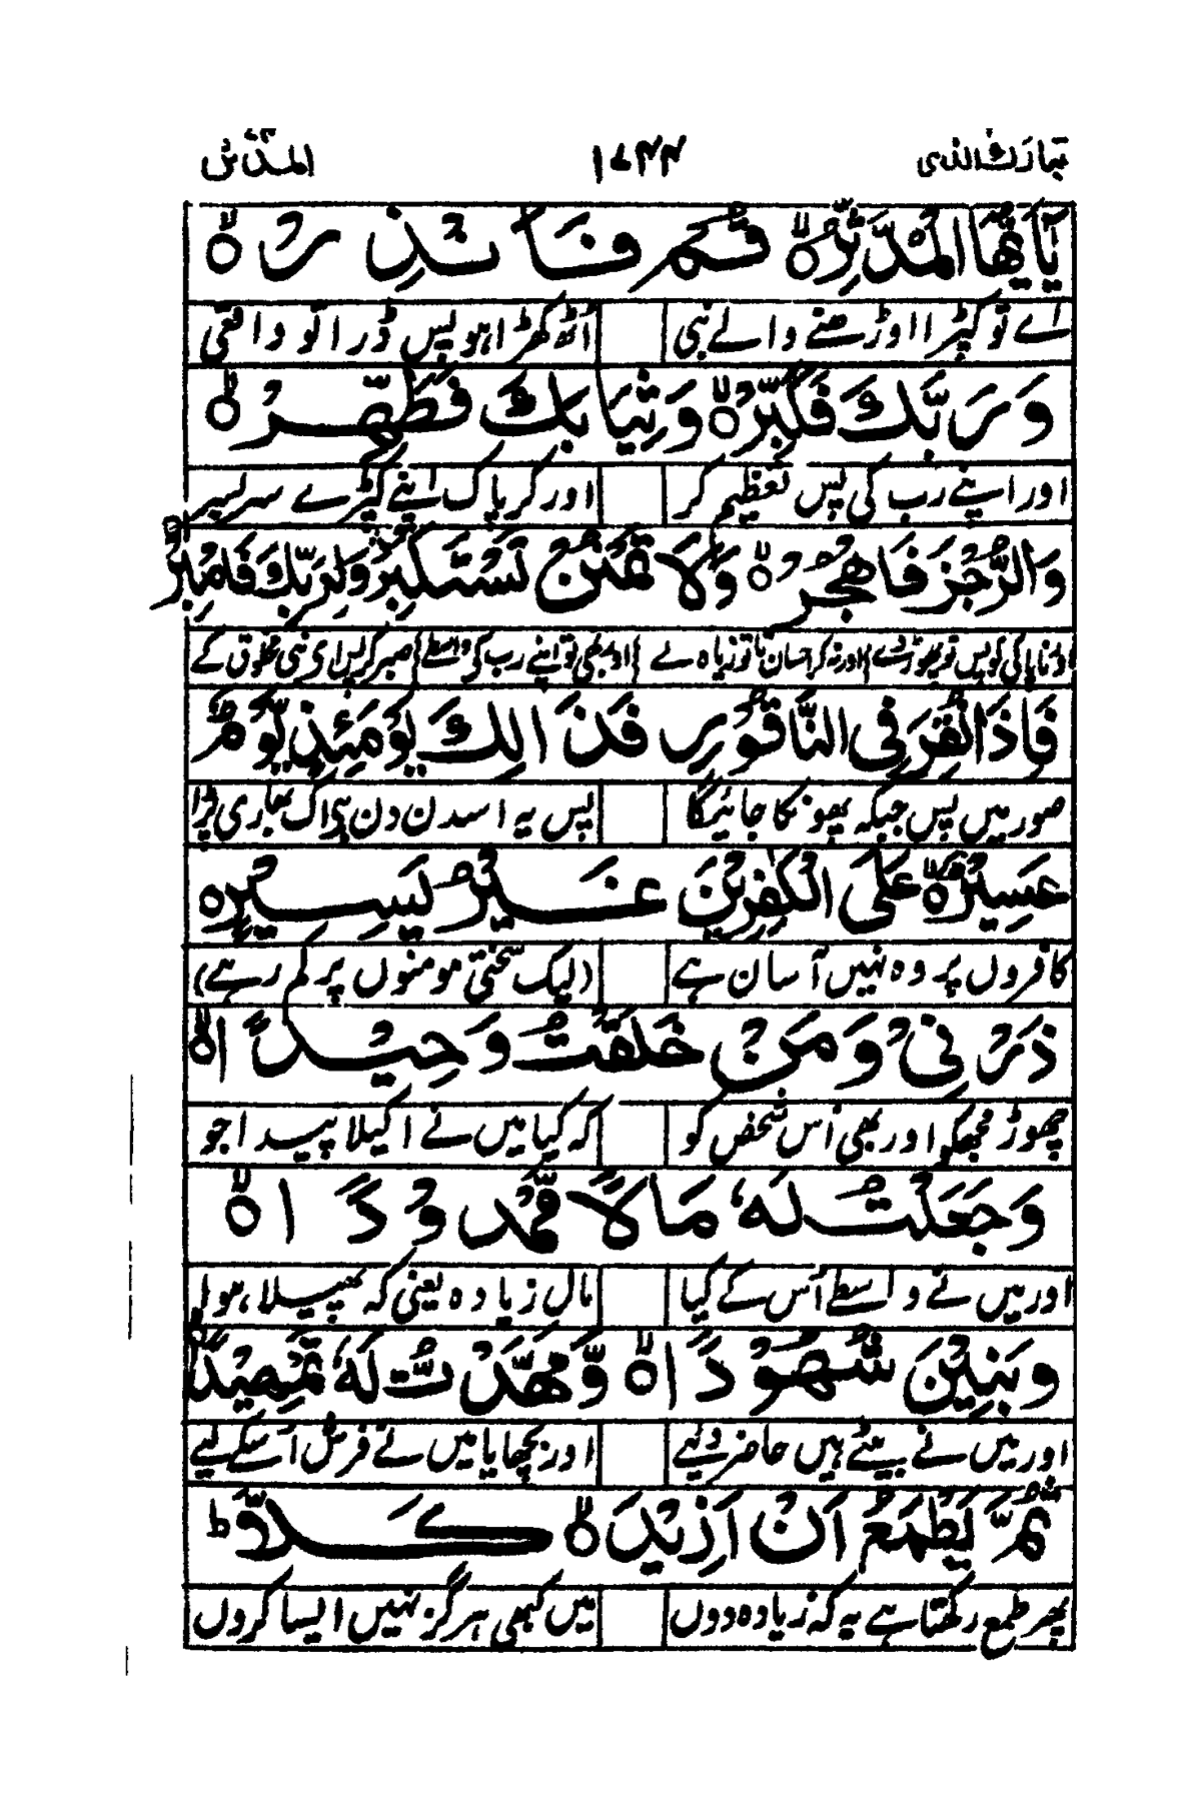 تبارك الذی ۱۷۴۴ المدّثر
يٰۤاَيُّهَا الْمُدَّثِّرُ ۙ قُمْ فَاَنْذِرْ ۙ
اے تو کپڑا اوڑھنے والے نبی اُٹھ کھڑا ہو پس ڈرا تو واقعی
وَرَبَّكَ فَكَبِّرْ ۙ وَثِيَابَكَ فَطَهِّرْ ۙ
اور اپنے رب کی پس تعظیم کر اور کر پاک اپنے کپڑے سربسر
وَالرُّجْزَ فَاهْجُرْ ۙ وَلَا تَمْنُنْ تَسْتَكْثِرُ وَلِرَبِّكَ فَاصْبِرْ
اور ناپاکی کو پس تو چھوڑ دے اور نہ کر احسان تا تو زیادہ لے اور بھی تو اپنے رب کے واسطے صبر کر پس اے نبی مخلوق کے
فَاِذَا نُقِرَ فِی النَّاقُوْرِ فَذٰالِكَ يَوْمَئِذٍ يَّوْمٌ
صور میں پس جبکہ پھونکا جائیگا پس یہ اسدن دن ہے اک بھاری بڑا
عَسِيْرٌ ۙ عَلَى الْكٰفِرِيْنَ غَيْرُ يَسِيْرٍ ہ
کافروں پر وہ نہیں آسان ہے (لیک سختی مومنوں پر کم رہے)
ذَرْنِیْ وَمَنْ خَلَقْتُ وَحِيْدًا ۙ
چھوڑ مجھکو اور بھی اُس شخص کو کہ کیا میں نے اکیلا پیدا جو
وَجَعَلْتُ لَهٗ مَالًا مَّمْدُوْدًا ۙ
اور میں نے واسطے اُس کے کیا مال زیادہ یعنی کہ پھیلا ہوا
وَبَنِيْنَ شُهُوْدًا ۙ وَّمَهَّدْتُّ لَهٗ تَمْهِيْدًا ۙ
اور میں نے بیٹے ہیں حاضر دئیے اور بچھایا میں نے فرش اُسکے لیے
ثُمَّ يَطْمَعُ اَنْ اَزِيْدَ ۙ كَلَّا ؕ
پھر طمع رکھتا ہے یہ کہ زیادہ دوں میں کبھی ہرگز نہیں ایسا کروں